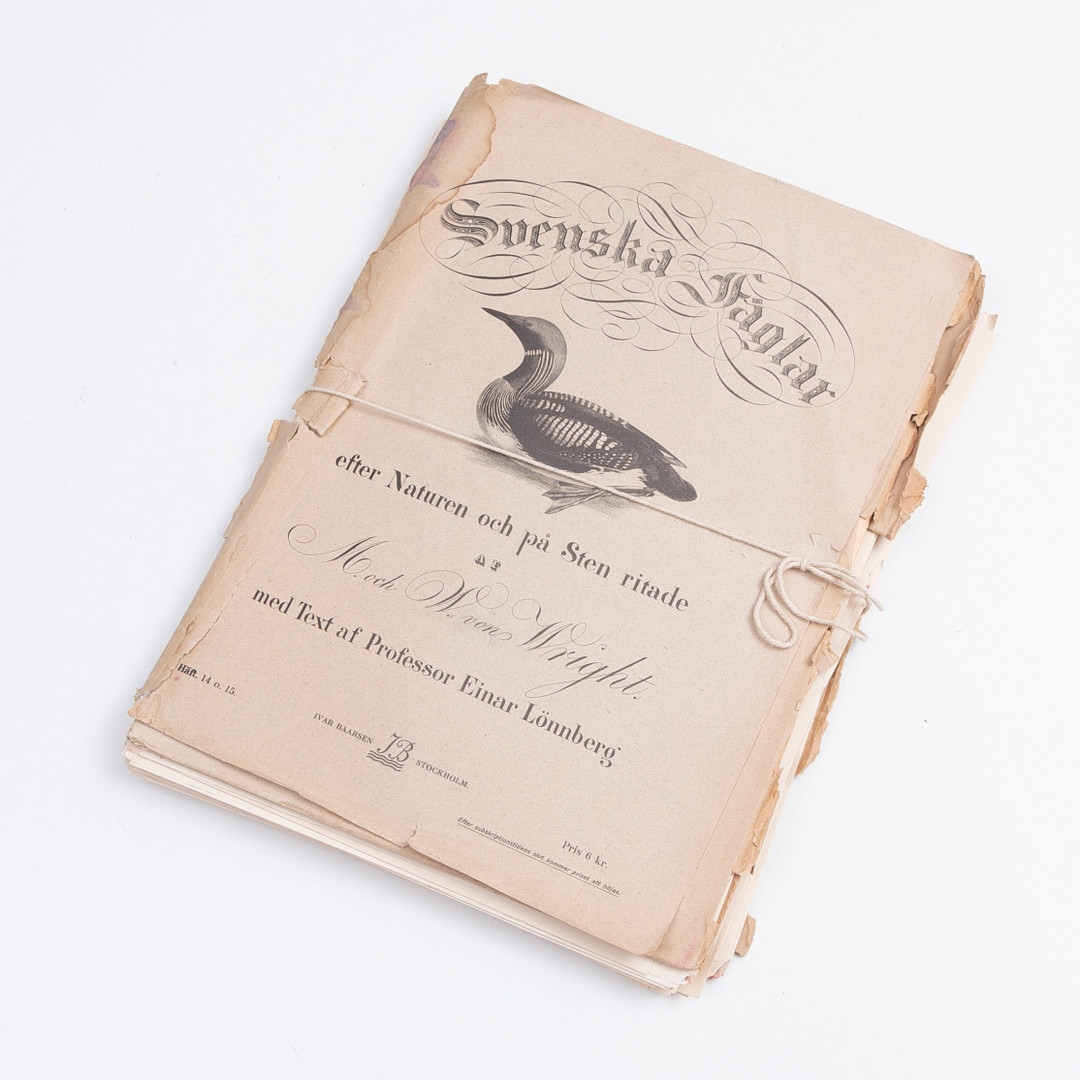 Svenska Fåglar
efter Naturen och på Sten ritade
AF
M. och W. von Wright.
med Text af Professor Einar Lönnberg
Häft. 14 o. 15.
IVAR BAARSEN JB STOCKHOLM.
Pris 6 kr.
Efter subskriptionstidens slut kommer priset att höjas.